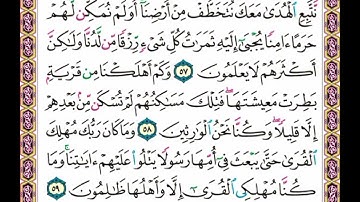 نَّتَّبِعِ ٱلْهُدَىٰ مَعَكَ نُتَخَطَّفْ مِنْ أَرْضِنَآ أَوَلَمْ نُمَكِّن لَّهُمْ
حَرَمًا ءَامِنًا يُجْبَىٰٓ إِلَيْهِ ثَمَرَٰتُ كُلِّ شَىْءٍ رِّزْقًا مِّن لَّدُنَّا وَلَـٰكِنَّ
أَكْثَرَهُمْ لَا يَعْلَمُونَ ٥٧ وَكَمْ أَهْلَكْنَا مِن قَرْيَةٍۭ
بَطِرَتْ مَعِيشَتَهَا فَتِلْكَ مَسَـٰكِنُهُمْ لَمْ تُسْكَن مِّنۢ بَعْدِهِمْ
إِلَّا قَلِيلًا وَكُنَّا نَحْنُ ٱلْوَٰرِثِينَ ٥٨ وَمَا كَانَ رَبُّكَ مُهْلِكَ
ٱلْقُرَىٰ حَتَّىٰ يَبْعَثَ فِىٓ أُمِّهَا رَسُولًا يَتْلُوا۟ عَلَيْهِمْ ءَايَـٰتِنَا وَمَا
كُنَّا مُهْلِكِى ٱلْقُرَىٰٓ إِلَّا وَأَهْلُهَا ظَـٰلِمُونَ ٥٩